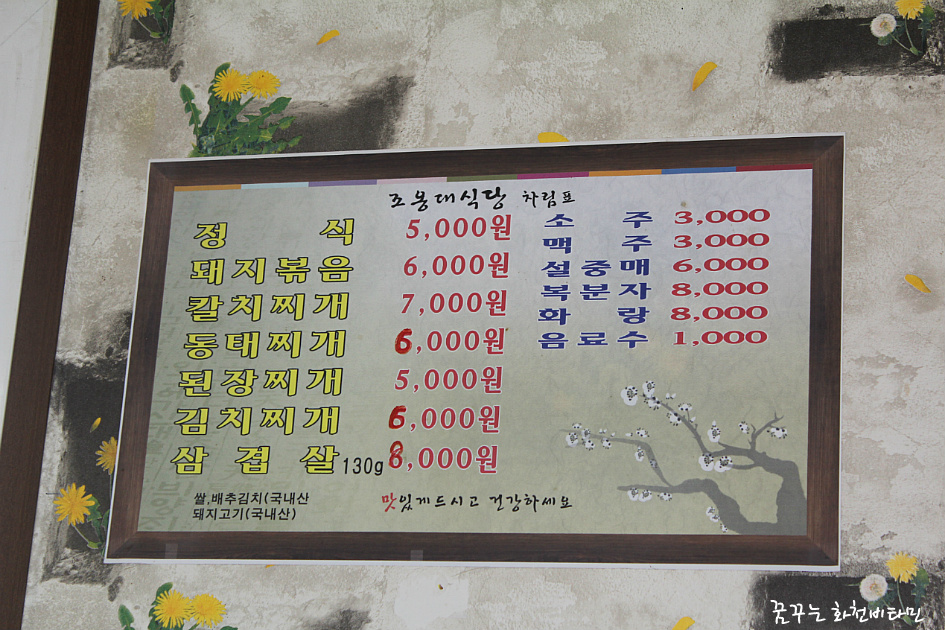 조용대식당 차림표
정식 5,000원
돼지볶음 6,000원
칼치찌개 7,000원
동태찌개 6,000원
된장찌개 5,000원
김치찌개 6,000원
삼겹살 130g 8,000원
소주 3,000
맥주 3,000
설중매 6,000
복분자 8,000
화랑 8,000
음료수 1,000
쌀,배추김치(국내산
돼지고기(국내산)
맛있게드시고 건강하세요
꿈꾸는 화천비타민